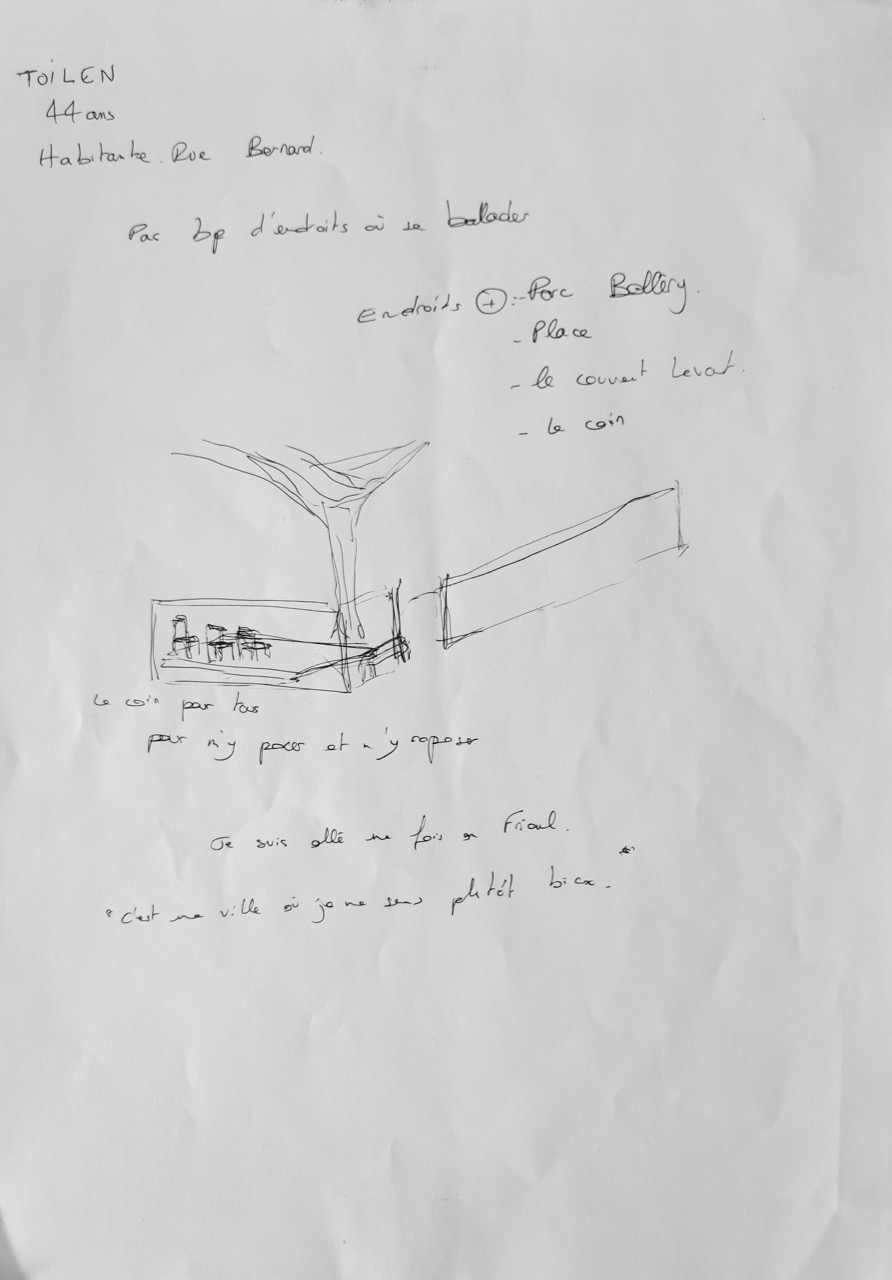 TOILEN
44 ans
Habitante. Rue Bernard.
Pas bp d'endroits où se balader
Endroits + : - Parc Bellevy.
- Place
- le couvent Levat.
- le coin
Le coin par tous
pour m'y poser et m'y reposer
Je suis allé une fois en Frioul.
"c'est une ville où je me sens plutôt bien."